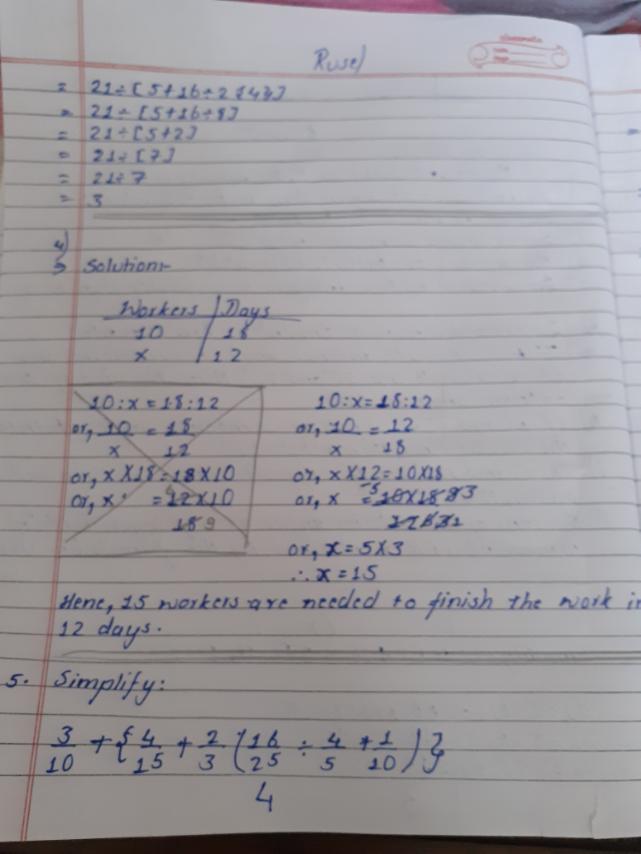 Rusel
classmate
= 21÷[5+16÷2{4}]
= 21÷[5+16÷8]
= 21÷[5+2]
= 21÷[7]
= 21÷7
= 3
4)
→ Solution:-
Workers | Days
10 | 18
x | 12
10:x=18:12
or, 10/x = 18/12
or, x X18=18X10
or, x = 12X10/18 9
10:x=18:12
or, 10/x = 12/18
or, x X12=10X18
or, x = 5 10X18 93/12 6 2 1
or, x=5X3
∴x=15
Hene, 15 workers are needed to finish the work in
12 days.
5. Simplify:
3/10 + {4/15 + 2/3 (16/25 ÷ 4/5 + 1/10)}
4